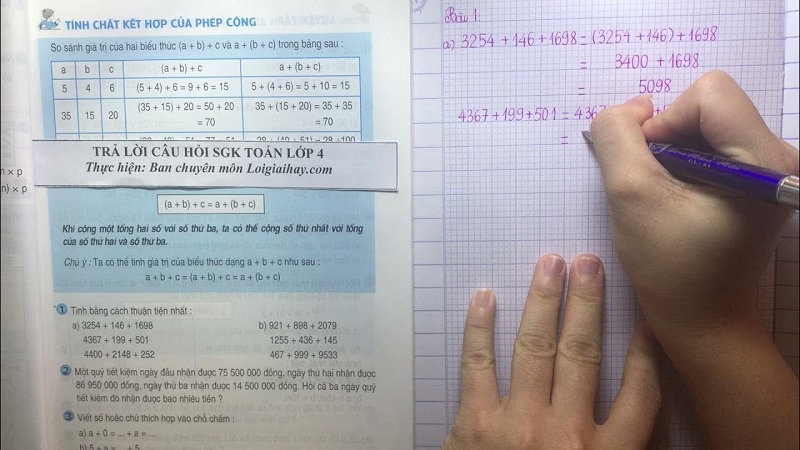 TÍNH CHẤT KẾT HỢP CỦA PHÉP CỘNG
So sánh giá trị của hai biểu thức (a + b) + c và a + (b + c) trong bảng sau :
a b c (a + b) + c a + (b + c)
5 4 6 (5 + 4) + 6 = 9 + 6 = 15 5 + (4 + 6) = 5 + 10 = 15
35 15 20 (35 + 15) + 20 = 50 + 20 = 70 35 + (15 + 20) = 35 + 35 = 70
TRẢ LỜI CÂU HỎI SGK TOÁN LỚP 4
Thực hiện: Ban chuyên môn Loigiaihay.com
(a + b) + c = a + (b + c)
Khi cộng một tổng hai số với số thứ ba, ta có thể cộng số thứ nhất với tổng
của số thứ hai và số thứ ba.
Chú ý : Ta có thể tính giá trị của biểu thức dạng a + b + c như sau :
a + b + c = (a + b) + c = a + (b + c)
1 Tính bằng cách thuận tiện nhất :
a) 3254 + 146 + 1698 b) 921 + 898 + 2079
4367 + 199 + 501 1255 + 436 + 145
4400 + 2148 + 252 467 + 999 + 9533
2 Một quỹ tiết kiệm ngày đầu nhận được 75 500 000 đồng, ngày thứ hai nhận được
86 950 000 đồng, ngày thứ ba nhận được 14 500 000 đồng. Hỏi cả ba ngày quỹ
tiết kiệm đó nhận được bao nhiêu tiền ?
3 Viết số hoặc chữ thích hợp vào chỗ chấm :
a) a + 0 = ... + a = ...
b) 5 + a = ... + 5
× p
n) × p
Bài 1:
a) 3254 + 146 + 1698 = (3254 + 146) + 1698
= 3400 + 1698
= 5098
4367 + 199 + 501 = 4367
=